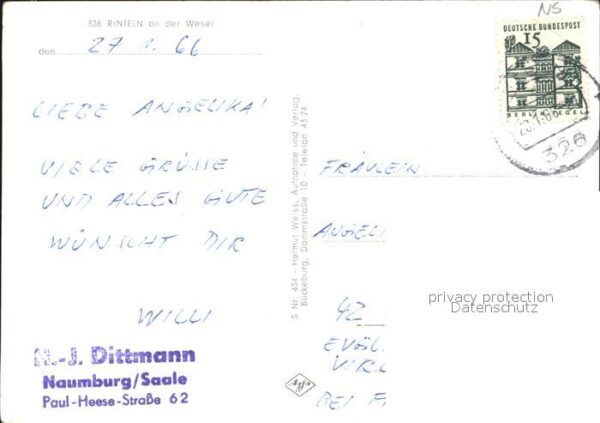 326 RINTELN an der Weser
den 27 1. 66
LIEBE ANGELIKA!
VIELE GRÜSSE
UND ALLES GUTE
WÜNSCHT DIR
WILLI
H.-J. Dittmann
Naumburg/Saale
Paul-Heese-Straße 62
S Nr. 454 - Helmut Weiss, Aufnahme und Verlag,
Bückeburg, Dammstraße 10 - Telefon 43 24
Agfa
NS
DEUTSCHE BUNDESPOST
15
BERLIN TEGEL
326
FRÄULEIN
ANGELI
42
EVGL.
BEI F
privacy protection
Datenschutz